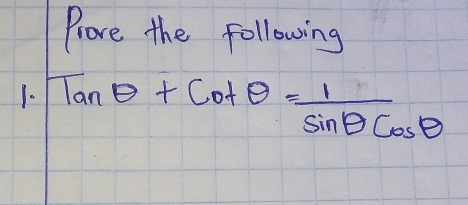 Prove the following
1. Tan θ + Cot θ = 1
sin θ Cos θ